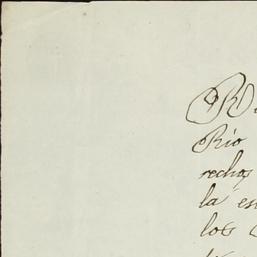 R
Rio
rechos
la es
los